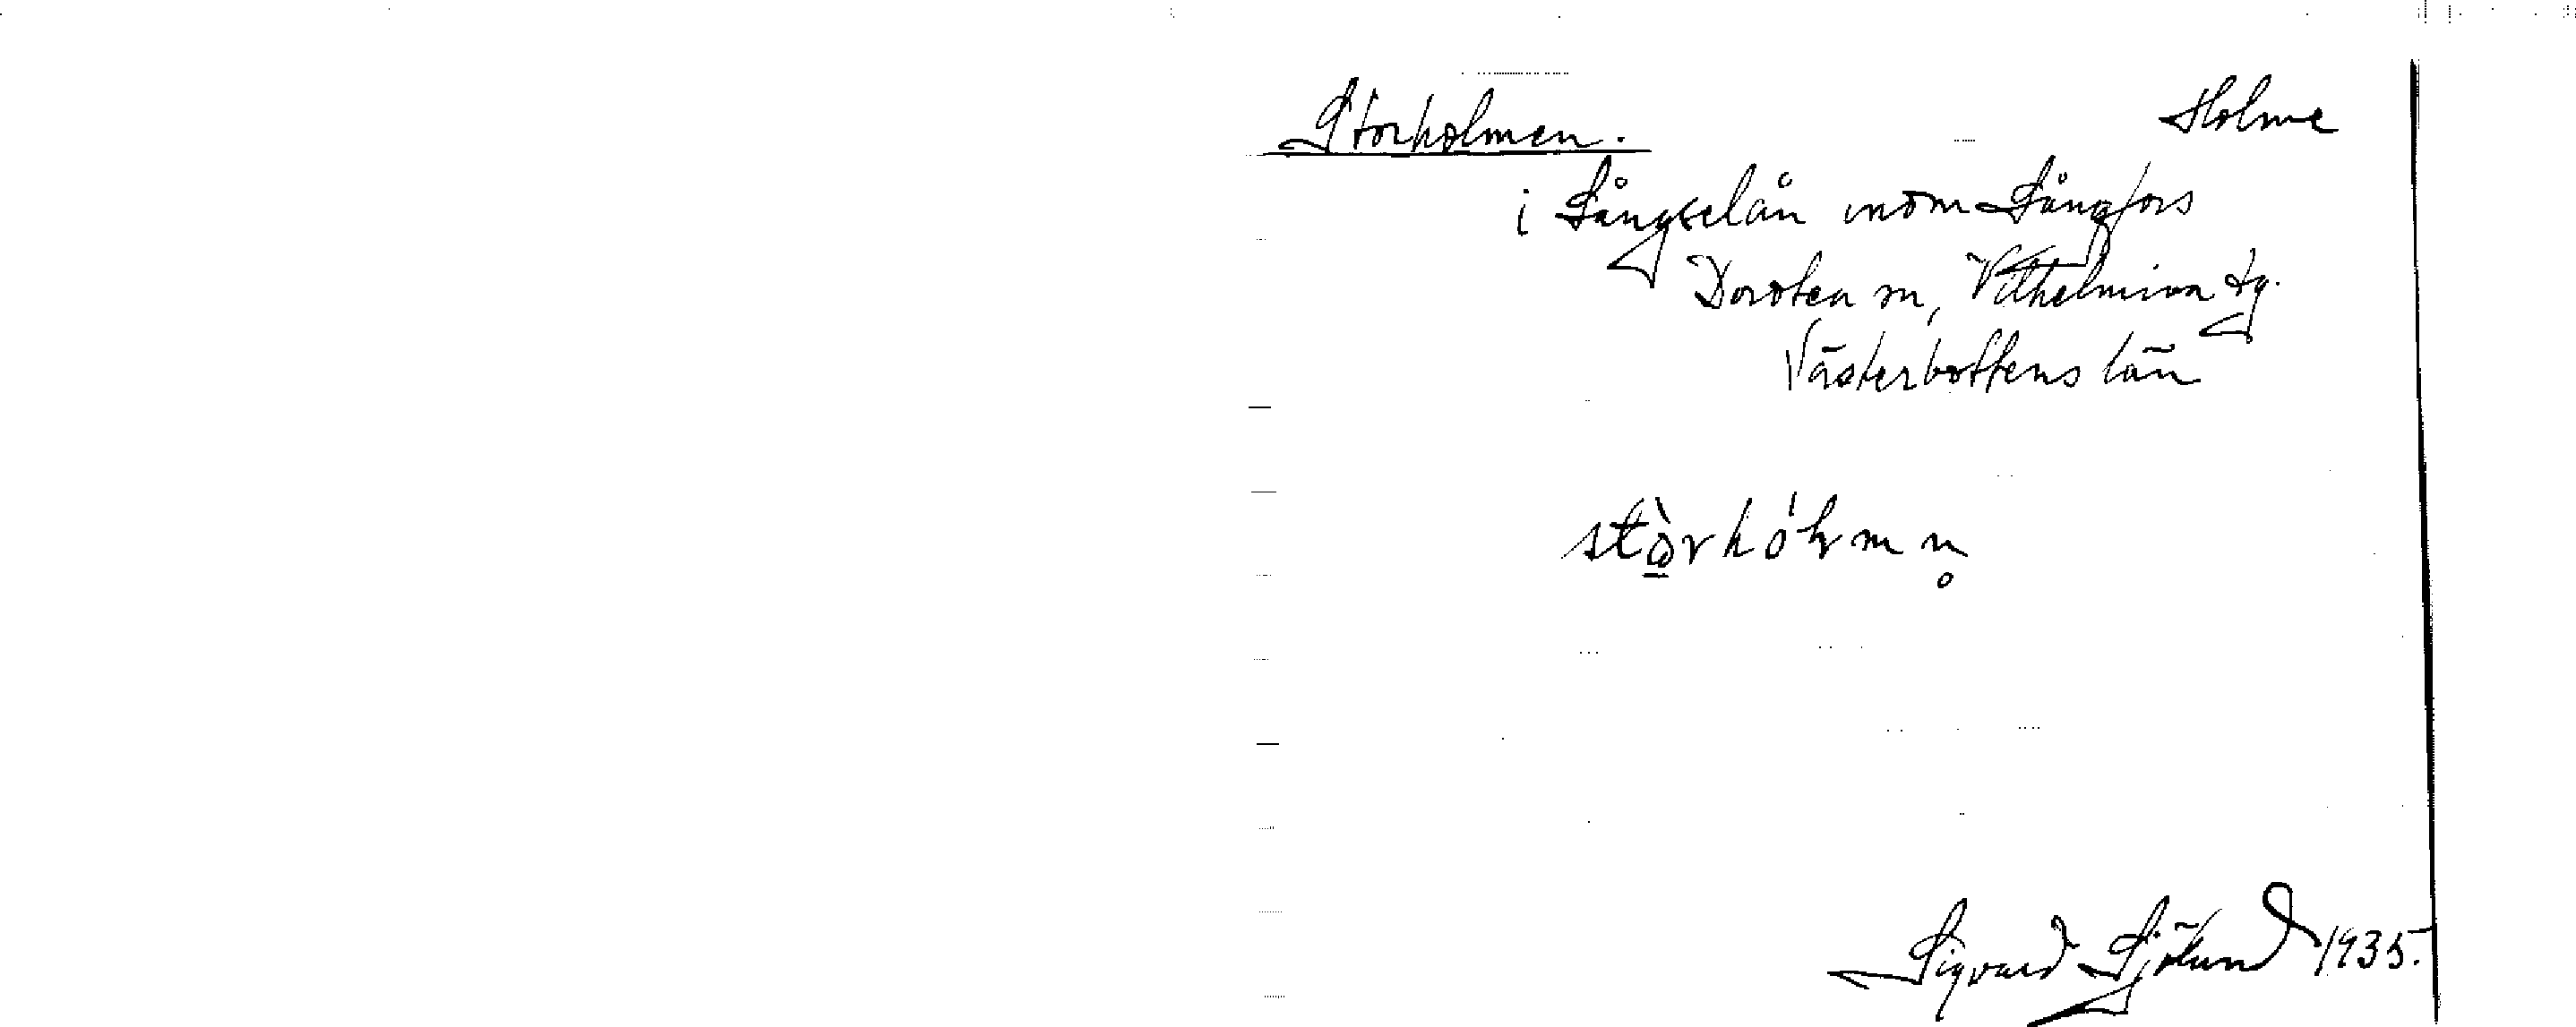 Storholmen. Holme
i Långselån inom Långfors
Dorotea sn, Vilhelmina tg.
Västerbottens län
Sigvard Sjölund 1935.